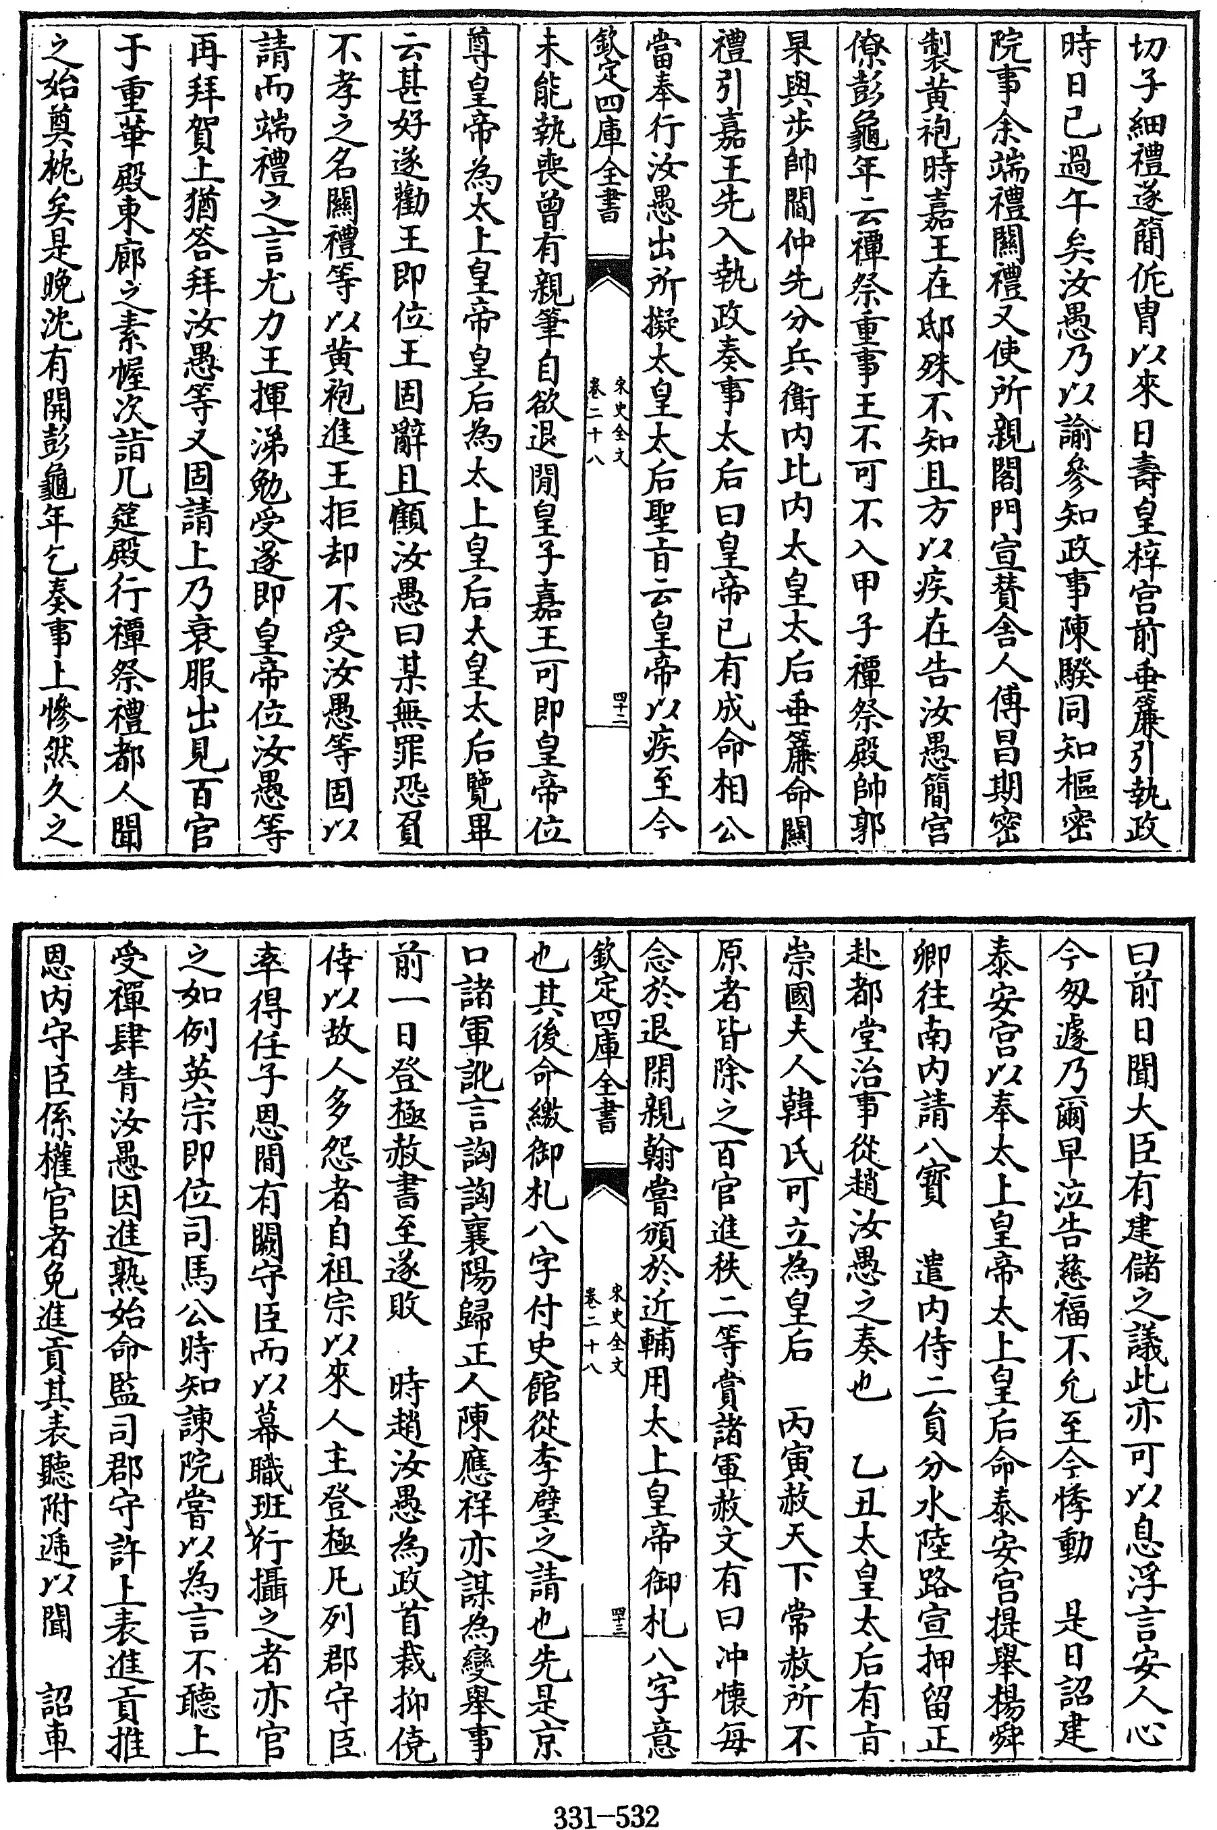 切子細禮遂簡侂胄以來日壽皇梓宫前垂簾引執政
時日已過午矣汝愚乃以諭參知政事陳騤同知樞密
院事余端禮關禮又使所親閤門宣賛舍人傅昌期密
製黄袍時嘉王在邸殊不知且方以疾在告汝愚簡宫
僚彭龜年云禫祭重事王不可不入甲子禫祭殿帥郭
杲與步帥閻仲先分兵衛内比内太皇太后垂簾命關
禮引嘉王先入執政奏事太后曰皇帝已有成命相公
當奉行汝愚出所擬太皇太后聖㫖云皇帝以疾至今
欽定四庫全書
宋史全文
卷二十八
四十二
未能執喪曾有親筆自欲退閒皇子嘉王可即皇帝位
尊皇帝為太上皇帝皇后為太上皇后太皇太后覽畢
云甚好遂勸王即位王固辭且顧汝愚曰某無罪恐負
不孝之名關禮等以黄袍進王拒却不受汝愚等固以
請而端禮之言尤力王揮涕勉受遂即皇帝位汝愚等
再拜賀上猶答拜汝愚等又固請上乃衰服出見百官
于重華殿東廊之素幄次詣几筵殿行禫祭禮都人聞
之始奠枕矣是晚沈有開彭龜年乞奏事上慘然久之
曰前日聞大臣有建儲之議此亦可以息浮言安人心
今匆遽乃爾早泣告慈福不允至今悸動　是日詔建
泰安宫以奉太上皇帝太上皇后命泰安宫提舉楊舜
卿往南内請八寳　遣内侍二員分水陸路宣押留正
赴都堂治事從趙汝愚之奏也　乙丑太皇太后有㫖
崇國夫人韓氏可立為皇后　丙寅赦天下常赦所不
原者皆除之百官進秩二等賞諸軍赦文有曰冲懷每
念於退閑親翰嘗頒於近輔用太上皇帝御札八字意
欽定四庫全書
宋史全文
卷二十八
四十三
也其後命繳御札八字付史館從李璧之請也先是京
口諸軍訛言訩訩襄陽歸正人陳應祥亦謀為變舉事
前一日登極赦書至遂敗　時趙汝愚為政首裁抑僥
倖以故人多怨者自祖宗以來人主登極凡列郡守臣
率得任子恩間有闕守臣而以幕職班行攝之者亦官
之如例英宗即位司馬公時知諫院嘗以為言不聽上
受禪肆眚汝愚因進熟始命監司郡守許上表進貢推
恩内守臣係權官者免進貢其表聽附遞以聞　詔車
331-532